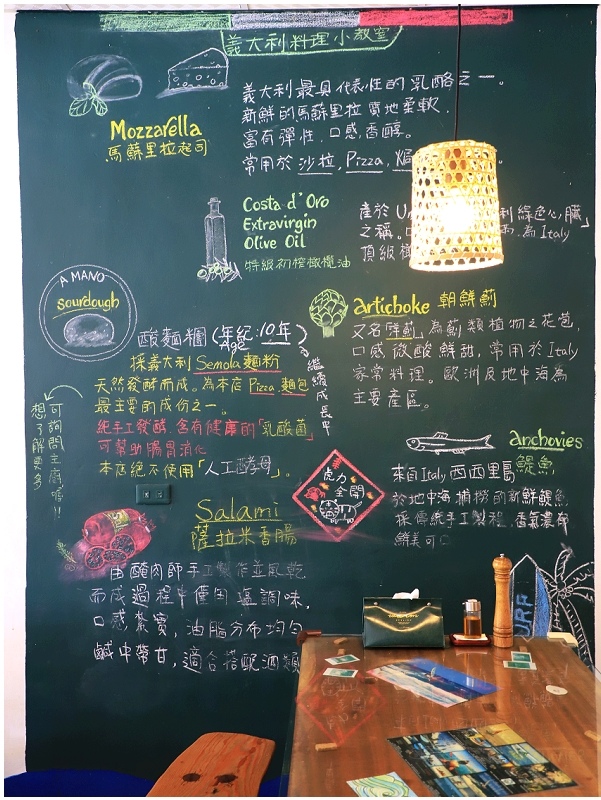 義大利料理小教室
Mozzarella
馬蘇里拉起司
義大利最具代表性的乳酪之一。
新鮮的馬蘇里拉質地柔軟,
富有彈性,口感香醇。
常用於沙拉,Pizza,焗
Costa d'Oro
Extravirgin
Olive Oil
特級初榨橄欖油
產於U 利綠色心臟」
之稱。 為Italy
頂級橄
A MANO
sourdough
酸麵糰(年紀:10年)
Age
繼續成長中
採義大利Semola麵粉
天然發酵而成。為本店Pizza,麵包
最主要的成份之一。
純手工發酵,含有健康的「乳酸菌」
可幫助腸胃消化
本店絕不使用「人工酵母」。
可詢問主廚喔!!
想了解更多
artichoke 朝鮮薊
又名「洋薊」為薊類植物之花苞,
口感微酸鮮甜,常用於Italy
家常料理。歐洲及地中海為
主要產區。
anchovies
鯷魚
來自Italy西西里島
於地中海捕撈的新鮮鯷魚
採傳統手工製程,香氣濃郁
鮮美可口
虎力
全開
Salami
薩拉米香腸
由醃肉師手工製作並風乾
而成過程中僅用鹽調味,
口感紮實,油脂分布均勻
鹹中帶甘,適合搭配酒類
URF